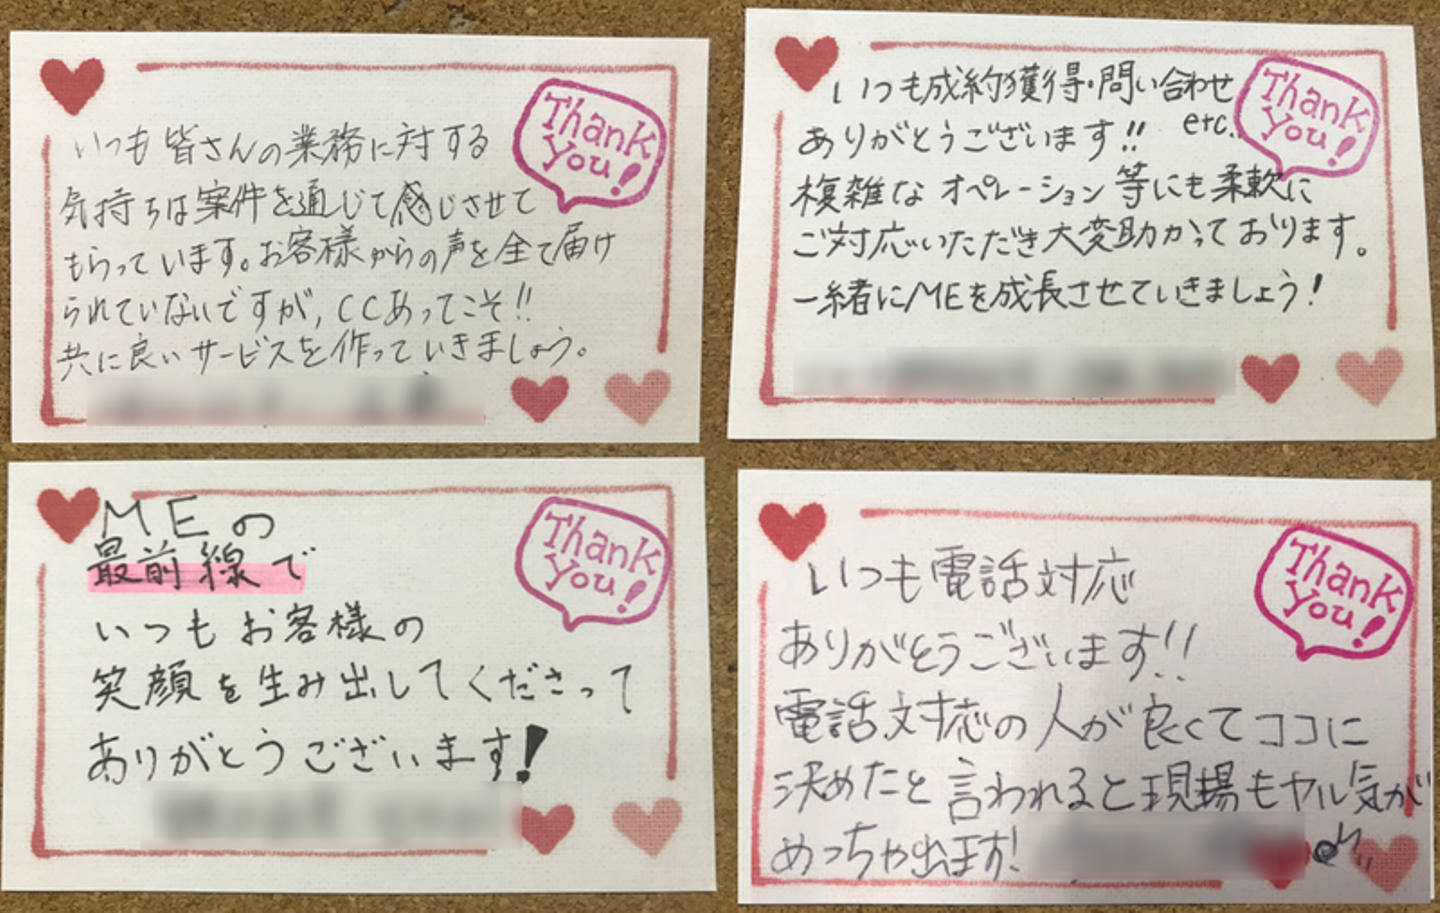 Thank
you!
いつも皆さんの業務に対する
気持ちは案件を通じて感じさせて
もらっています。お客様からの声を全て届け
られていないですが、CCあってこそ!!
共に良いサービスを作っていきましょう。
Thank
you!
いつも成約獲得・問い合わせ
etc..
ありがとうございます!!
複雑なオペレーション等にも柔軟に
ご対応いただき大変助かっております。
一緒にMEを成長させていきましょう!
Thank
you!
MEの
最前線で
いつもお客様の
笑顔を生み出してくださって
ありがとうございます!
Thank
you!
いつも電話対応
ありがとうございます!!
電話対応の人が良くてココに
決めたと言われると現場もヤル気が
めっちゃ出ます!